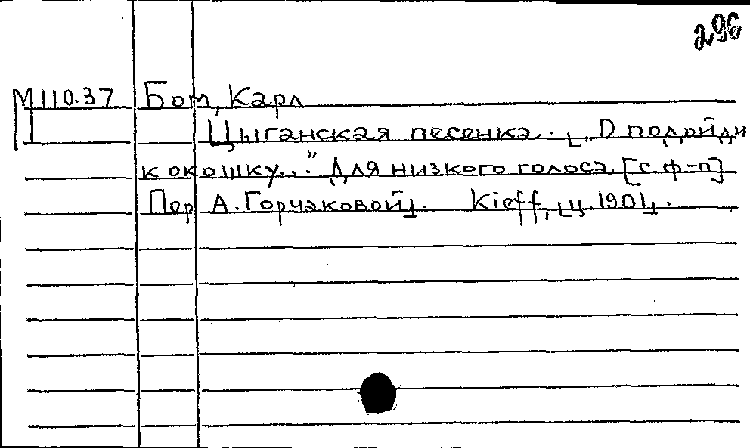 296
М 110.37 Бом, Карл
Цыганская песенка. „О подойди
к окошку..." Для низкого голоса. [с ф-п]
Пер А. Горчаковой]. Kieff, [ц. 1901].